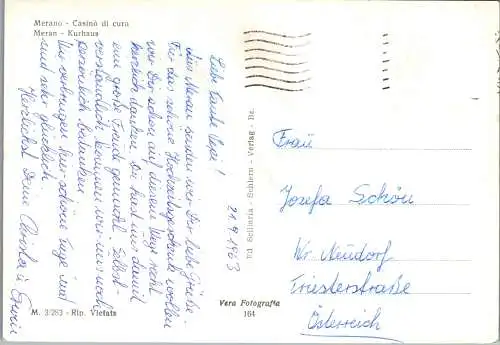 Merano - Casinò di cura
Meran - Kurhaus
21.9.1963
Liebe Tante Pepi!
Aus Meran senden wir Dir liebe Grüße.
Für das schöne Hochzeitsgeschenk wollen
wir Dir schon auf diesem Wege recht
herzlich danken. Du hast uns damit
eine große Freude gemacht. Selbst-
verständlich kommen wir uns noch
persönlich bedanken.
Wir verbringen hier schöne Tage und
sind sehr glücklich.
Herzlichst Deine Christa u. Erwin
M. 3/282 - Rip. Vietata
Ed. Sellinria - Schlern - Verlag - Bz.
Vera Fotografia
164
Frau
Josefa Schön
Wr. Neudorf
Triesterstraße
Österreich